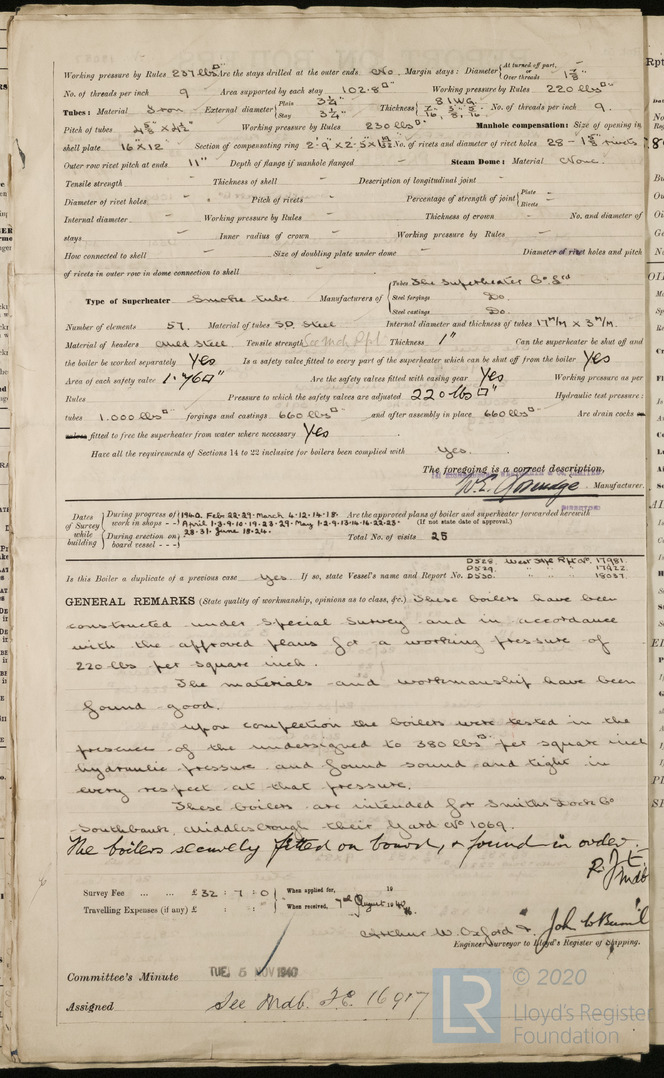 Working pressure by Rules 237 lbs □" Are the stays drilled at the outer ends No. Margin stays: Diameter { At turned off part, or Over threads 1⅞"
No. of threads per inch 9 Area supported by each stay 102.8 □" Working pressure by Rules 220 lbs □"
Tubes: Material Iron External diameter { Plain 3¼" Stay 3¼" Thickness { 8 I.W.G. No. of threads per inch 9.
Pitch of tubes Working pressure by Rules 230 lbs □" Manhole compensation: Size of opening in
shell plate 16 x 12 Section of compensating ring No. of rivets and diameter of rivet holes 28 - rivets
Outer row rivet pitch at ends 11" Depth of flange if manhole flanged - Steam Dome: Material None.
Tensile strength - Thickness of shell - Description of longitudinal joint -
Diameter of rivet holes - Pitch of rivets - Percentage of strength of joint { Plate - Rivets -
Internal diameter - Working pressure by Rules - Thickness of crown - No. and diameter of
stays - Inner radius of crown - Working pressure by Rules -
How connected to shell - Size of doubling plate under dome - Diameter of rivet holes and pitch
of rivets in outer row in dome connection to shell -
Type of Superheater Smoke tube Manufacturers of { Tubes The Superheater Co Ltd
Steel forgings Do.
Steel castings Do.
Number of elements 57. Material of tubes SD. Steel Internal diameter and thickness of tubes 17 M/M x 3 M/M.
Material of headers Steel Tensile strength See Mch Rpt Thickness 1" Can the superheater be shut off and
the boiler be worked separately Yes Is a safety valve fitted to every part of the superheater which can be shut off from the boiler Yes
Area of each safety valve 1.76 □" Are the safety valves fitted with easing gear Yes Working pressure as per
Rules Pressure to which the safety valves are adjusted 220 lbs □" Hydraulic test pressure:
tubes 1.000 lbs □" forgings and castings 660 lbs □" and after assembly in place 660 lbs □" Are drain cocks or
valves fitted to free the superheater from water where necessary Yes
Have all the requirements of Sections 14 to 22 inclusive for boilers been complied with Yes.
The foregoing is a correct description,
Manufacturer.
DIRECTOR
Dates of Survey while building { During progress of work in shops - - } 1940. Feb 22.29. March 4.12.14.18. Are the approved plans of boiler and superheater forwarded herewith
April 1.3.9.10.19.23.29. May 1.2.9.13.14.16.22.23. (If not state date of approval.)
During erection on board vessel - - - } 28.31. June 18.24. Total No. of visits 25
D528. West Hpl Rpt No. 17981.
D529. " " " 17922.
Is this Boiler a duplicate of a previous case Yes. If so, state Vessel's name and Report No. D530. " " " 18037.
GENERAL REMARKS (State quality of workmanship, opinions as to class, &c.) These boilers have been
constructed under Special Survey and in accordance
with the approved plans for a working pressure of
220 lbs per square inch.
The materials and workmanship have been
found good.
Upon completion the boilers were tested in the
presence of the undersigned to 380 lbs □" per square inch
hydraulic pressure and found sound and tight in
every respect at that pressure.
These boilers are intended for Smiths Dock Co
Southbank, Middlesbrough their Yard No 1069.
The boilers securely fitted on board, & found in order.
Mdb
Survey Fee ... ... £ 32 : 7 : 0 } When applied for, 19
Travelling Expenses (if any) £ : : } When received, 7th August 1940
Arthur W. Oxford &
Engineer Surveyor to Lloyd's Register of Shipping.
Committee's Minute TUE 5 NOV 1940
Assigned See Mdb. F.E. 16917
© 2020
LR
Lloyd's Register
Foundation